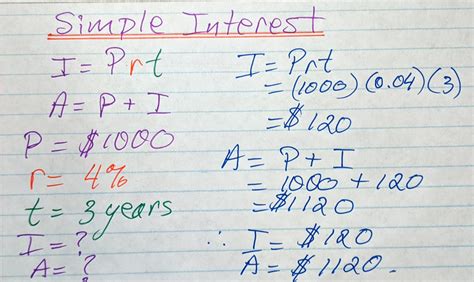 Simple Interest
I = Prt
A = P + I
P = $1000
r = 4%
t = 3 years
I = ?
A = ?
I = Prt
= (1000) (0.04) (3)
= $120
A = P + I
= 1000 + 120
= $1120
∴ I = $120
A = $1120.